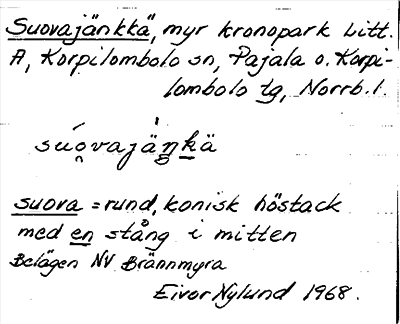 Suovajänkkä, myr kronopark Litt.
A, Korpilombolo sn, Pajala o. Korpi-
lombolo tg, Norrb. l.
súo̯vajäŋkä
suova = rund, konisk höstack
med en stång i mitten
Belägen NV Brännmyra
Eivor Nylund 1968.